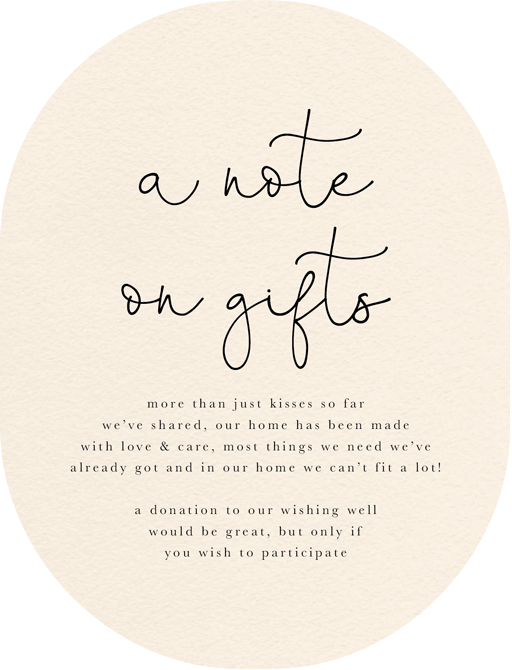 a note
on gifts
more than just kisses so far
we've shared, our home has been made
with love & care, most things we need we've
already got and in our home we can't fit a lot!
a donation to our wishing well
would be great, but only if
you wish to participate